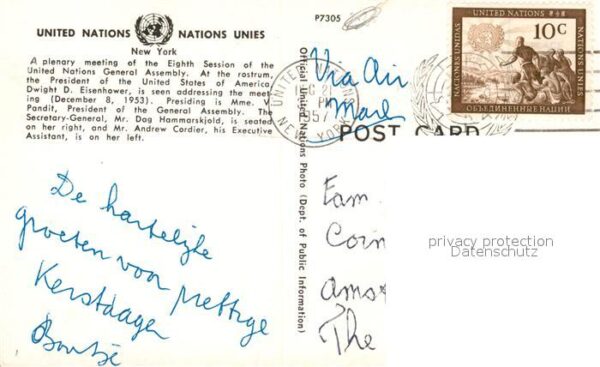 P7305
UNITED NATIONS NATIONS UNIES
New York
A plenary meeting of the Eighth Session of the
United Nations General Assembly. At the rostrum,
the President of the United States of America,
Dwight D. Eisenhower, is seen addressing the meet-
ing (December 8, 1953). Presiding is Mme. V.
Pandit, President of the General Assembly. The
Secretary-General, Mr. Dag Hammarskjold, is seated
on her right, and Mr. Andrew Cordier, his Executive
Assistant, is on her left.
De hartelijke
groeten voor prettige
Kerstdagen
Official United Nations Photo (Dept. of Public Information)
UNITED NATIONS
PM
1957
NEW YORK
Via Air
Mail
POST CARD
UNITED NATIONS
10c
NACIONES UNIDAS
NATIONS UNIES
ОБЪЕДИНЕННЫЕ НАЦИИ
Fam
Coin
Amst
The
privacy protection
Datenschutz